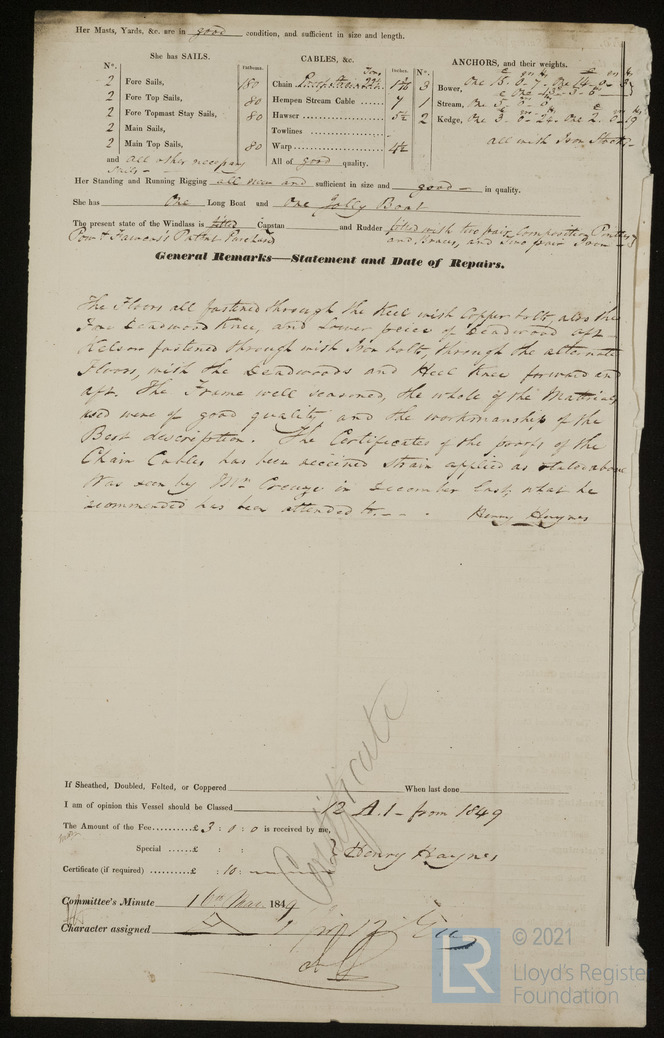 Her Masts, Yards, &c. are in good condition, and sufficient in size and length.
She has SAILS.
N°.
2 Fore Sails,
2 Fore Top Sails,
2 Fore Topmast Stay Sails,
2 Main Sails,
2 Main Top Sails,
and all other necessary
Sails -
CABLES, &c.
Fathoms.
Inches.
Chain 180
Hempen Stream Cable 80 7
Hawser 80
Towlines
Warp 80 4½
All of good quality.
ANCHORS, and their weights.
N°.
3 Bower,
1 Stream, One 5 - 0 -
2 Kedge, One 3 - 0 - 24. One 2. 0 - 19
all with Iron Stocks -
Her Standing and Running Rigging all new and sufficient in size and good - in quality.
She has One Long Boat and One Jolly Boat
The present state of the Windlass is fitted Capstan and Rudder fitted with two pair Composition Pintles
Patent Purchase and Braces, and two pair Iron -
General Remarks—Statement and Date of Repairs.
The Floors all fastened through the Keel with Copper bolts, also the
Fore Deadwood Knee, and Lower piece of Deadwood aft -
Kelson fastened through with Iron bolts, through the alternate
Floors, with the Deadwoods and Heel Knee forward and
aft. The Frame well seasoned, the whole of the Materials
used were of good quality, and the workmanship of the
Best description. The Certificates of the proofs of the
Chain Cables has been received Strain applied as stated above
Was seen by Mr. Creuze in December last, what he
recommended has been attended to. - - .
Henry Haynes
If Sheathed, Doubled, Felted, or Coppered When last done
I am of opinion this Vessel should be Classed 12 A.1 - from 1849
The Amount of the Fee £ 3 : 0 : 0 is received by me,
Special £ : :
Henry Haynes
Certificate (if required) £ : 10 : -
Certificate
Committee's Minute 16th 1849
Character assigned
© 2021
Lloyd's Register
Foundation
LR